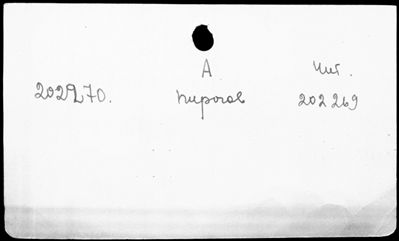 А Чит.
202270. Пирогов 202269